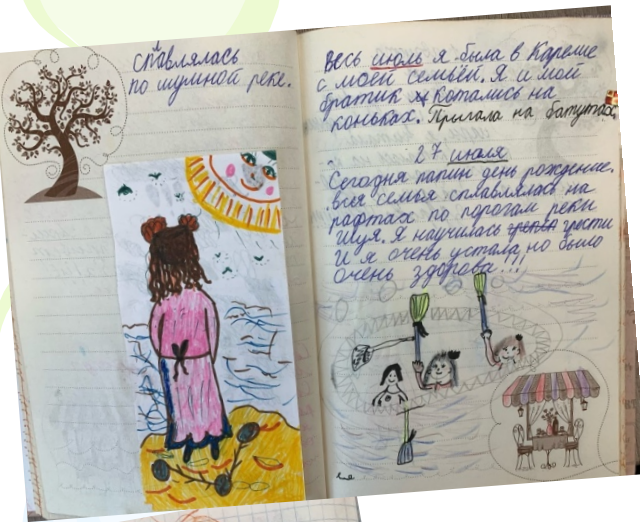 сплавлялась
по шумной реке.
Весь июль я была в Карелие
с моей семьёй. Я и мой
братик котались на
коньках. Прыгала на батутах,
27 июля
Сегодня папин день рождение.
вся семья сплавлялась на
рафтах по порогам реки
Шуя. Я научилась грести
И я очень устала, но было
очень здорова!!!